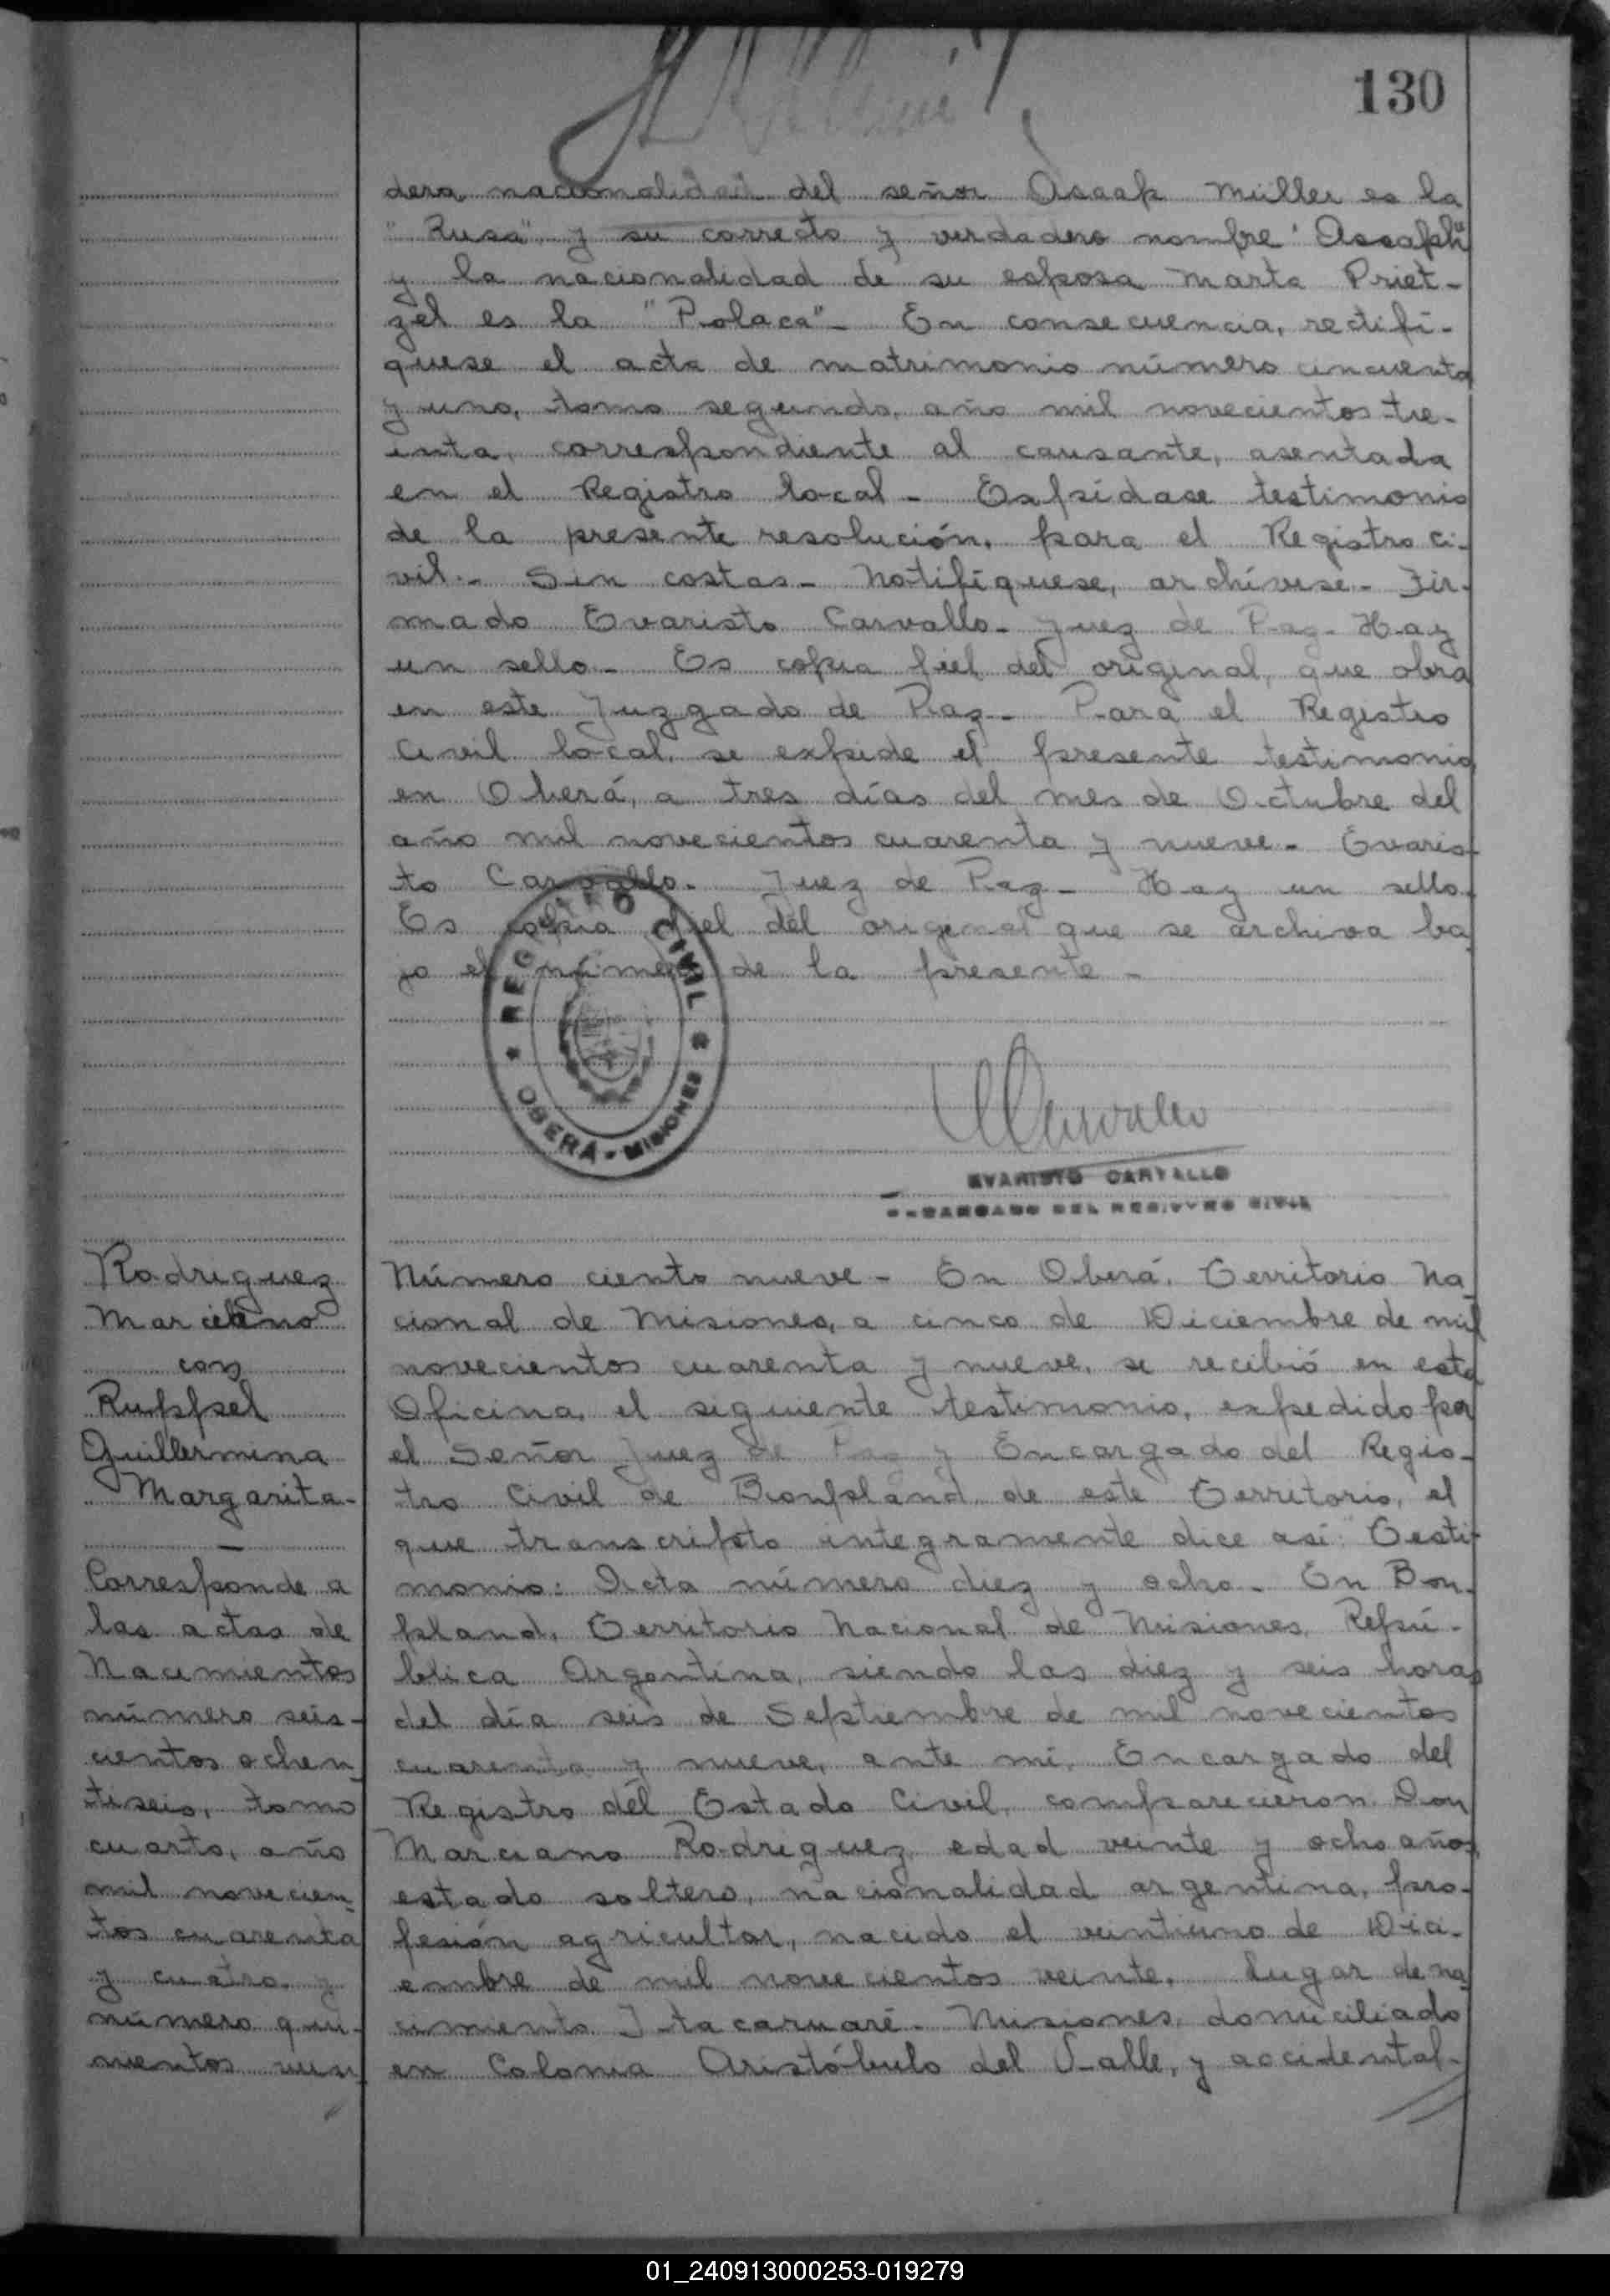 130
dera nacionalidad del señor Asaak Müller es la
"Rusa" y su correcto y verdadero nombre "Assaph"
y la nacionalidad de su esposa Marta Priet-
zel es la "Polaca"- En consecuencia, rectifi-
quese el acta de matrimonio número cincuenta
y uno, tomo segundo, año mil novecientos tre-
inta, correspondiente al causante, asentada
en el Registro local - Expídase testimonio
de la presente resolución, para el Registro Ci-
vil.- Sin costas- Notifíquese, archívese- Fir-
mado Evaristo Carvallo- Juez de Paz- Hay
un sello- Es copia fiel del original, que obra
en este Juzgado de Paz- Para el Registro
Civil local, se expide el presente testimonio
en Oberá, a tres días del mes de Octubre del
año mil novecientos cuarenta y nueve- Evaris-
to Carvallo. Juez de Paz- Hay un sello.
Es copia fiel del original que se archiva ba
jo el número de la presente-
REGISTRO CIVIL
OBERÁ - MISIONES
EVARISTO CARVALLO
ENCARGADO DEL REGISTRO CIVIL
Rodriguez
Marciano
con
Ruppel
Guillermina
Margarita-
Corresponde a
las actas de
Nacimientos
número seis-
cientos ochen
tiseis, tomo
cuarto, año
mil novecien
tos cuarenta
y cuatro y
número qui-
nientos
Número ciento nueve- En Oberá, Territorio Na
cional de Misiones, a cinco de Diciembre de mil
novecientos cuarenta y nueve, se recibió en esta
Oficina, el siguiente testimonio, expedido por
el Señor Juez de Paz y Encargado del Regis-
tro Civil de Bonpland, de este Territorio, el
que transcripto integramente dice así: "Testi-
monio: Acta número diez y ocho- En Bon-
pland, Territorio Nacional de Misiones, Repú-
blica Argentina, siendo las diez y seis horas
del día seis de Septiembre de mil novecientos
cuarenta y nueve, ante mí, Encargado del
Registro del Estado Civil, comparecieron Don
Marciano Rodriguez, edad veinte y ocho años,
estado soltero, nacionalidad argentina, pro-
fesión agricultor, nacido el veintiuno de Dici-
embre de mil novecientos veinte, lugar de na
cimiento Itacaruaré- Misiones, domiciliado
en Colonia Aristóbulo del Valle, y accidental-
01_240913000253-019279